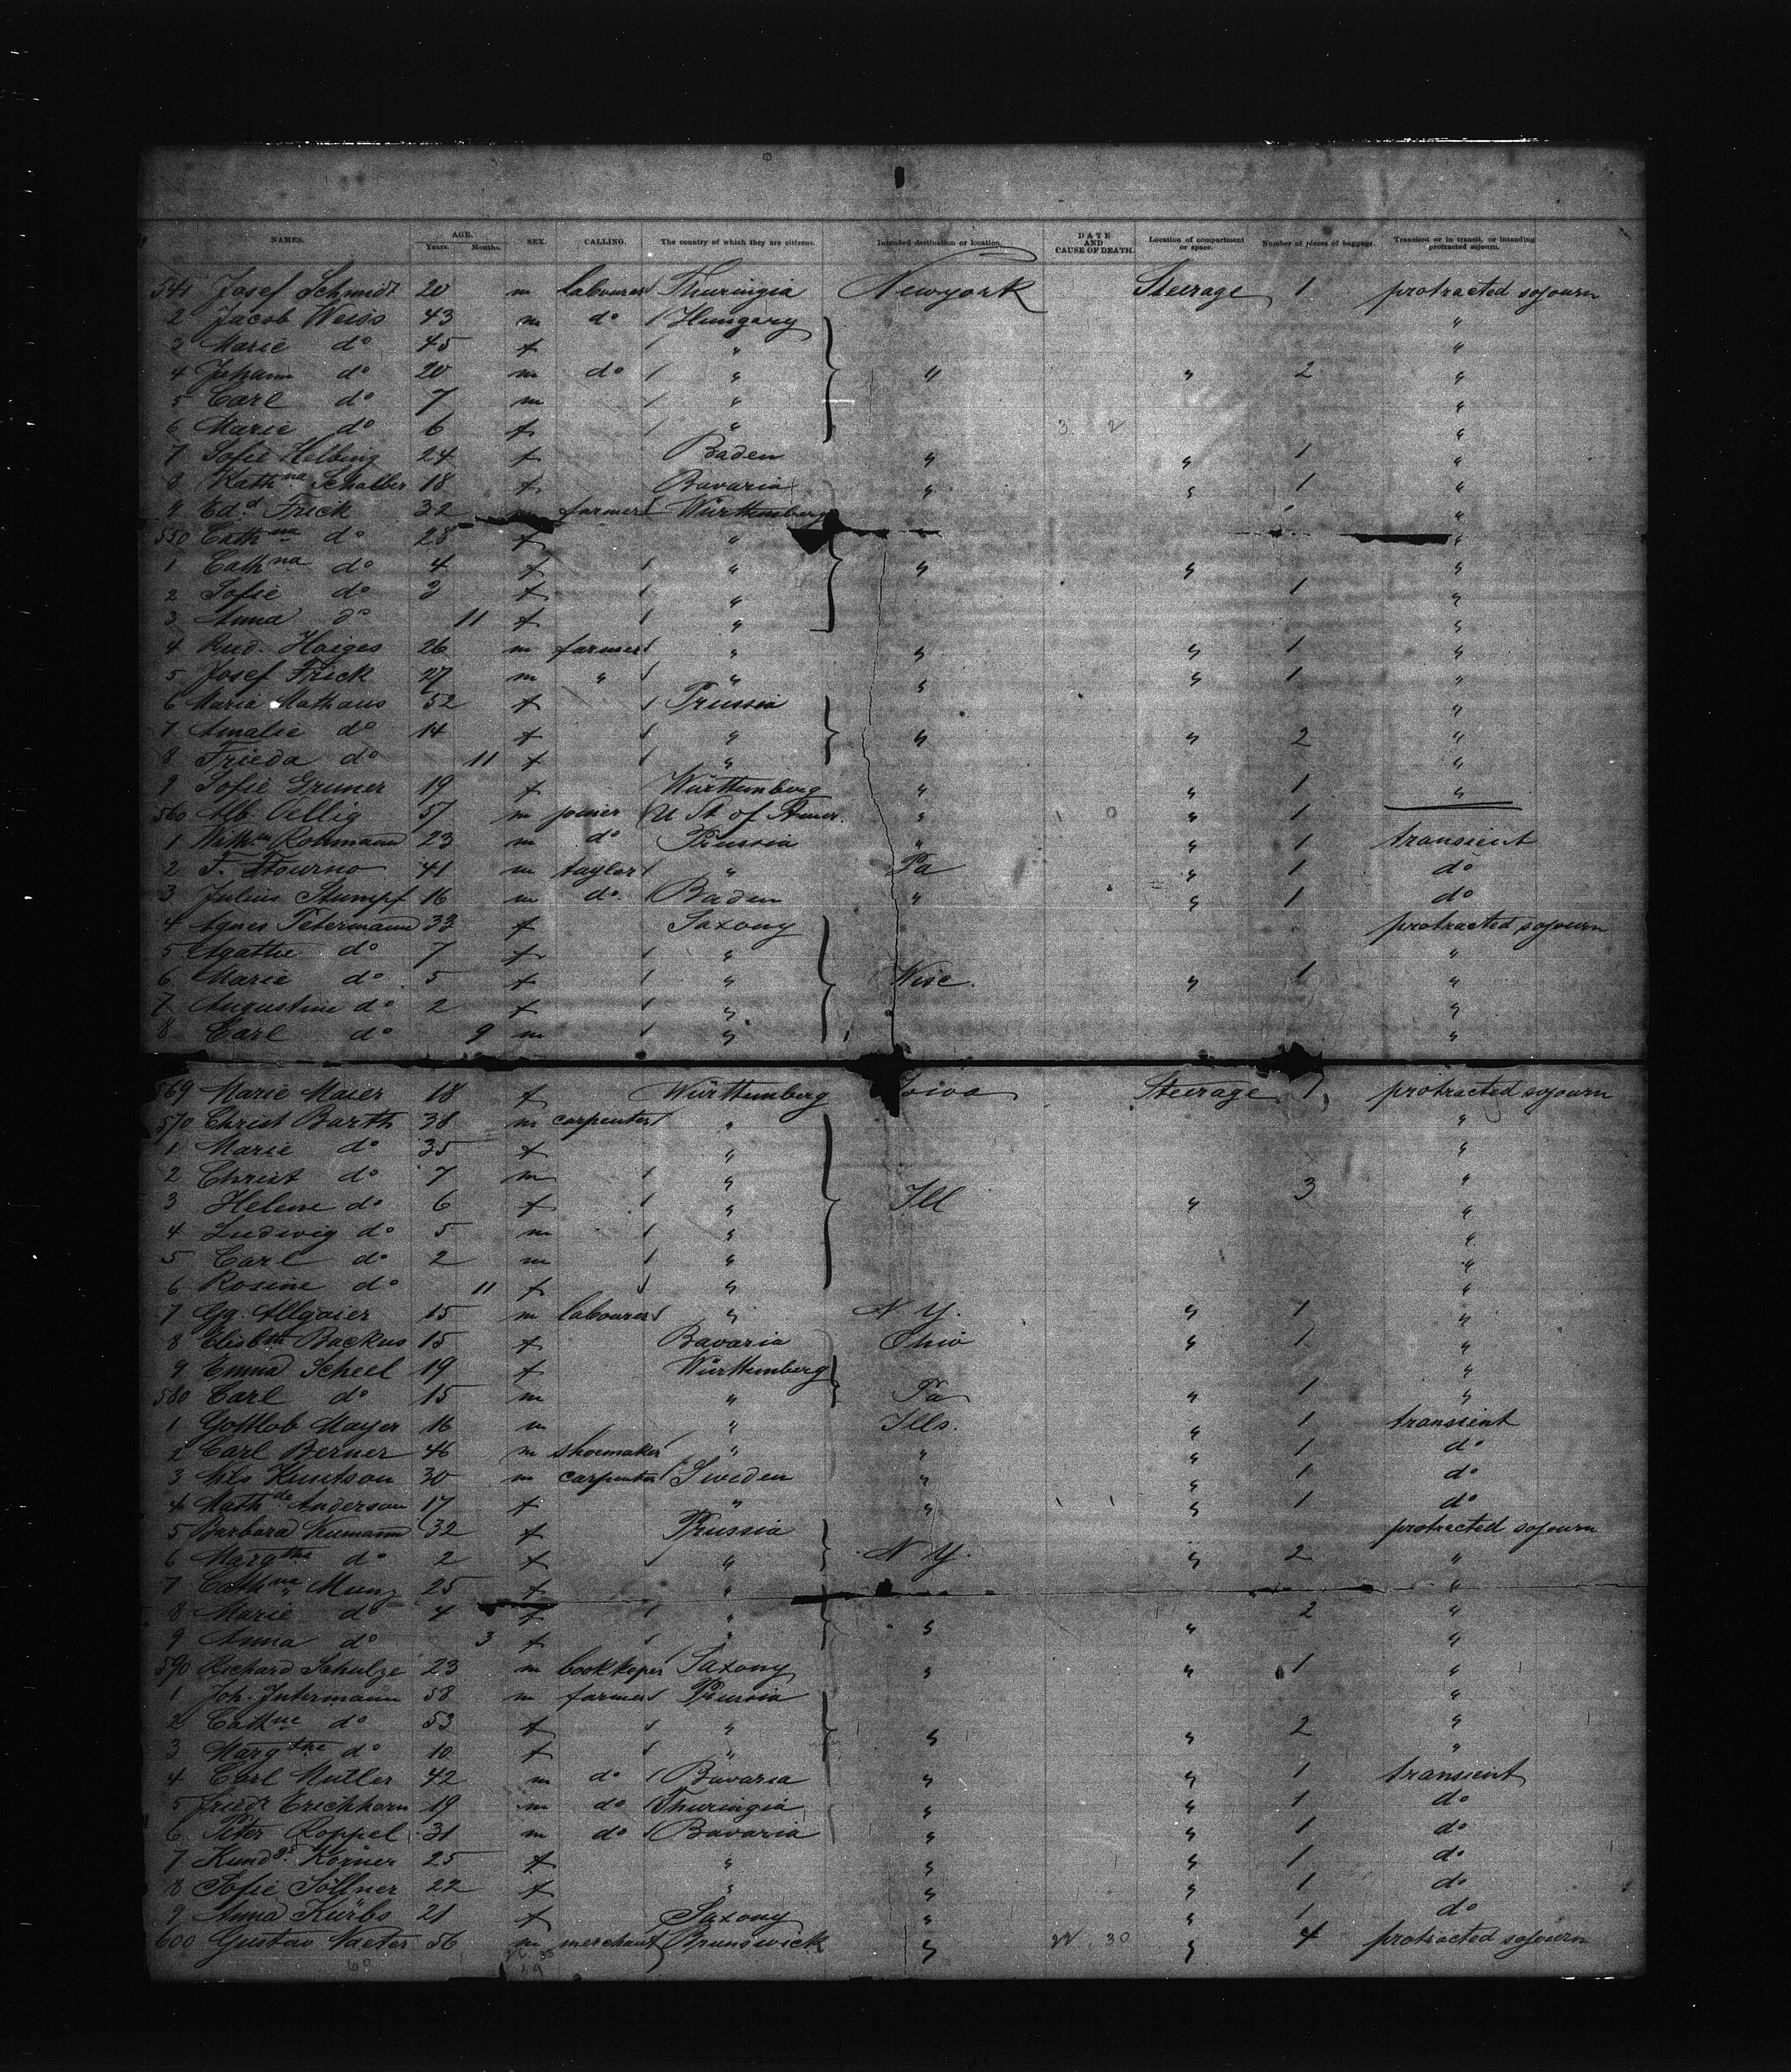 NAMES. AGE. Years. Months. SEX. CALLING. The country of which they are citizens. Intended destination or location. DATE AND CAUSE OF DEATH. Location of compartment or space. Number of pieces of baggage. Transient or in transit, or intending protracted sojourn.
541 Josef Schmidt 20 m labourer Thuringia Newyork Steerage 1 protracted sojourn
2 Jacob Weiss 43 m do Hungary "
3 Marie do 45 f " "
4 Johann do 20 m do " " " 2 "
5 Carl do 7 m " "
6 Marie do 6 f " "
7 Sofie Helbing 24 f Baden " " 1 "
8 Kathna Schalber 18 f Bavaria " " 1 "
9 Ed. Frick 32 m farmer Württemberg "
550 Cathna do 28 f " "
1 Cathna do 4 f " " " "
2 Sofie do 3 f " 1 "
3 Anna do 11 f " "
4 Rud. Haiges 26 m farmer " " " 1 "
5 Josef Frick 27 m " " " " 1 "
6 Maria Mathaus 52 f Prussia "
7 Amalie do 14 f " " " 2 "
8 Frieda do 11 f " "
9 Sofie Gruner 19 f Württemberg " " 1 "
560 Alb. Oellig 57 m joiner U St of Amer. " " 1
1 Wilhm Rohmann 23 m do Prussia " " 1 transient
2 F. Stourno 41 m taylor " Pa " 1 do
3 Julius Stumpf 16 m do. Baden " " 1 do
4 Agnes Petermann 33 f Saxony protracted sojourn
5 Agathe do 7 f " "
6 Marie do 5 f " Wisc. " 1 "
7 Augustine do 2 f " "
8 Carl do 9 m " "
569 Marie Maier 18 f Württemberg Iowa Steerage 1 protracted sojourn
570 Christ Barth 38 m carpenter " "
1 Marie do 35 f " "
2 Christ do 7 m " "
3 Helene do 6 f " Ill " 3 "
4 Ludwig do 5 m " "
5 Carl do 2 m " "
6 Rosine do 11 f " "
7 Gg. Allgaier 15 m labourer " N Y. " 1 "
8 Elisbth Backus 15 f Bavaria Ohio " 1 "
9 Emma Scheel 19 f Württemberg "
580 Carl do 15 m " Pa " 1 "
1 Gottlob Mayer 16 m " Ills. " 1 transient
2 Carl Berner 46 m shoemaker " " " 1 do
3 Nils Knutson 30 m carpenter Sweden " " 1 do
4 Mathde Anderson 17 f " " " 1 do
5 Barbara Neumann 32 f Prussia protracted sojourn
6 Margthe do 2 f " N Y. " 2 "
7 Cathne Munz 25 f " "
8 Marie do 4 f " 2 "
9 Anna do 3 f " " " "
590 Richard Schulze 23 m bookkeper Saxony " " 1 "
1 Joh. Intermann 58 m farmer Prussia "
2 Cathne do 53 f " " " 2 "
3 Margthe do 10 f " "
4 Carl Mutler 42 m do Bavaria " " 1 transient
5 Friedr Erichhorn 19 m do Thuringia " " 1 do
6 Peter Koppel 31 m do Bavaria " " 1 do
7 Kundg. Körner 25 f " " " 1 do
8 Sofie Söllner 22 f " " " 1 do
9 Anna Kürbs 21 f Saxony " " 1 do
600 Gustav Vaeter 56 m merchant Brunswick " " 4 protracted sojourn